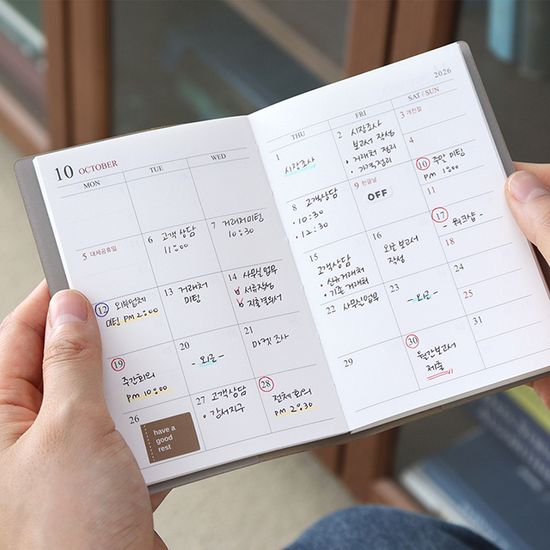 10 OCTOBER
MON
TUE
WED
5 대체공휴일
6 고객상담
11:00
7 거래처미팅
10:30
12 외부업체
미팅 pm 2:00
13 거래처
미팅
14 사무실 업무
서류작성
지출결의서
19
주간회의
pm 10:00
20
- 외근 -
21
마켓 조사
26
have a
good
rest
27 고객상담
• 강서지구
28
전체회의
pm 2:30
2026
THU
FRI
SAT / SUN
1
시장조사
2 시장조사
보고서 작성
• 거래처 정리
• 가격정리
3 개천절
4
8 고객상담
• 10:30
• 12:30
9 한글날
OFF
10 주말 미팅
pm 1:00
11
15
고객상담
• 신규거래처
• 기존 거래처
16
외근 보고서
작성
17
- 워크샵 -
18
22 사무실업무
23
- 외근 -
24
25
29
30
월간보고서
제출
31